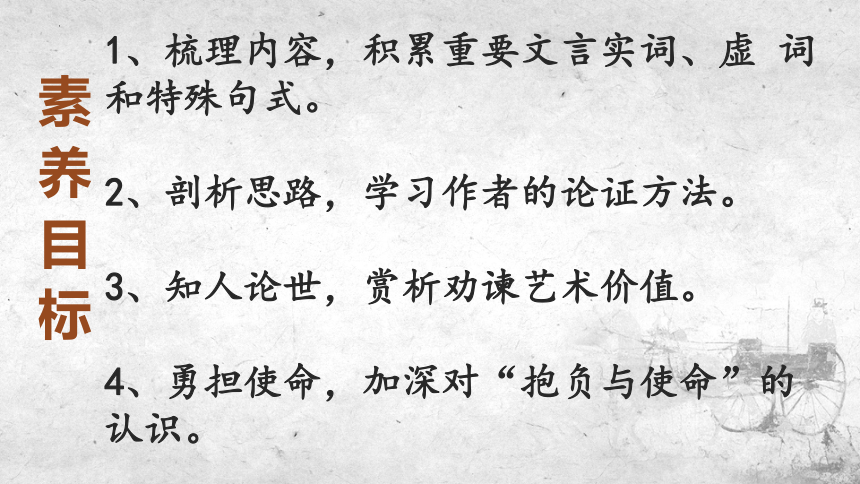 素养目标
1、梳理内容，积累重要文言实词、虚 词
和特殊句式。
2、剖析思路，学习作者的论证方法。
3、知人论世，赏析劝谏艺术价值。
4、勇担使命，加深对“抱负与使命”的
认识。